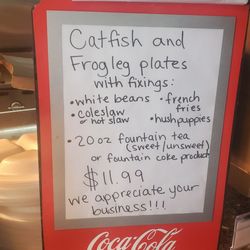 Catfish and
Frogleg plates
with fixings:
• white beans • french fries
• coleslaw or hot slaw • hushpuppies
• 20 oz fountain tea
(sweet/unsweet)
or fountain coke product
$11.99
we appreciate your
business!!!
Coca-Cola